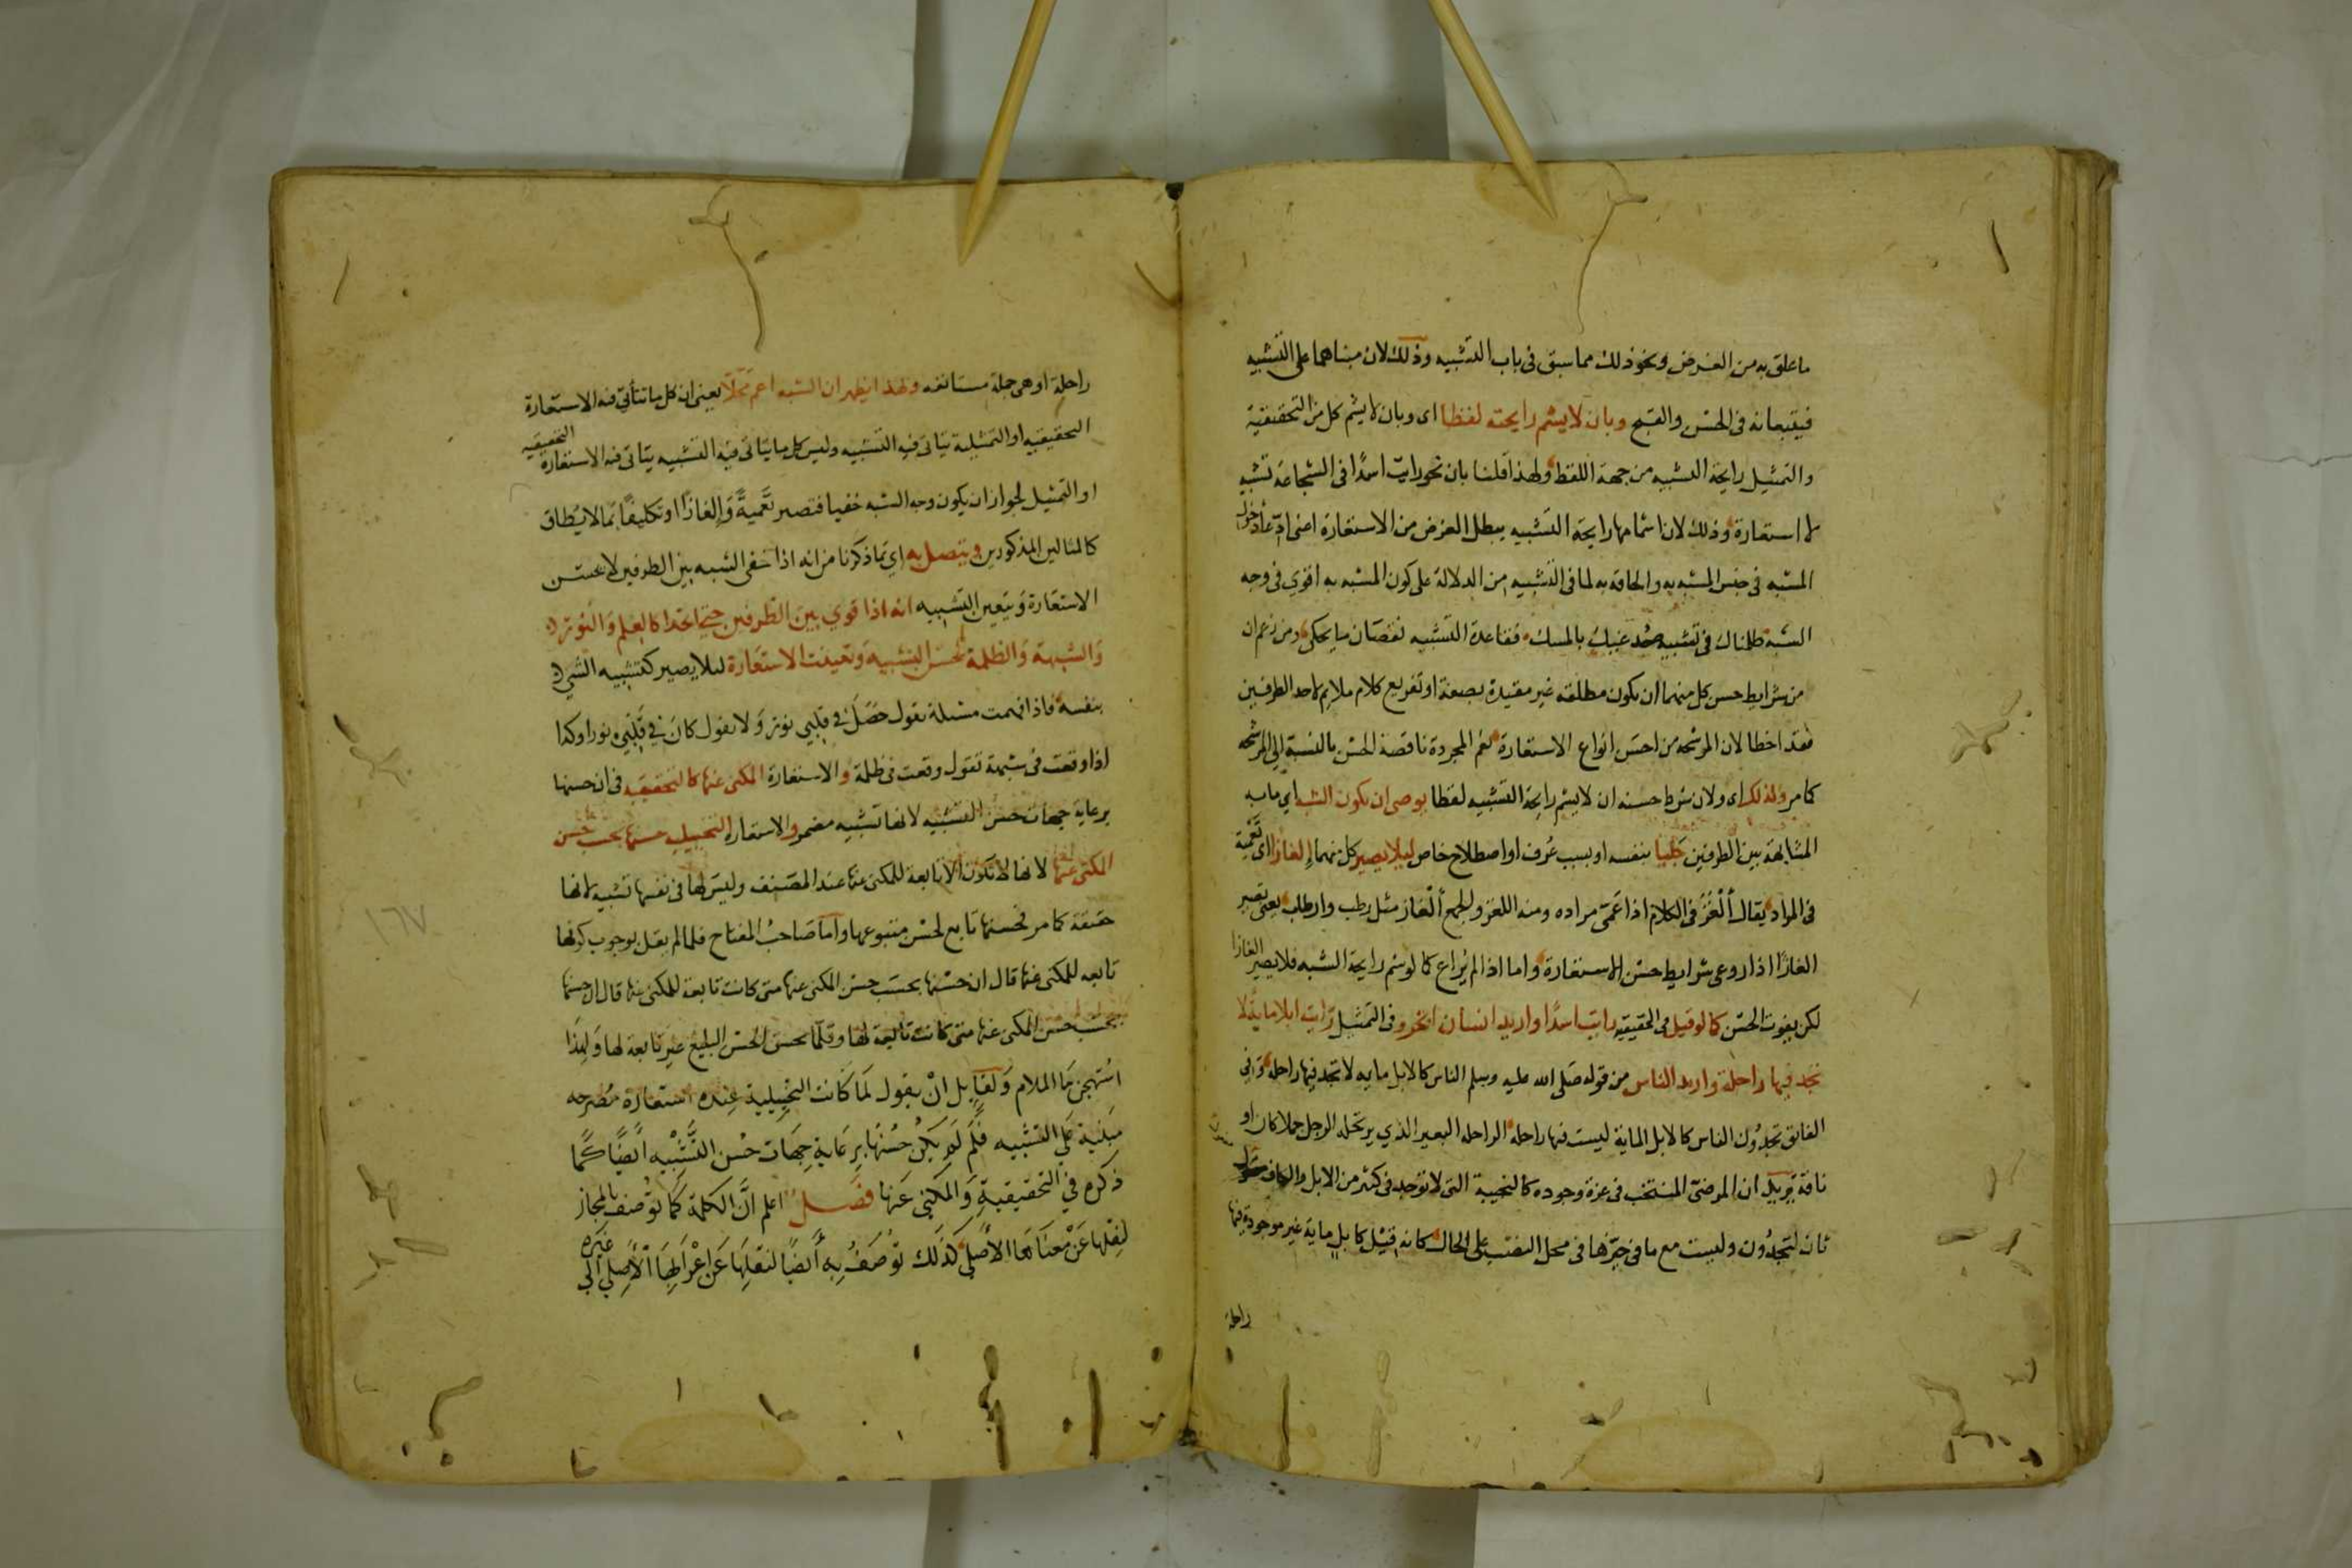 ما علق به من الغرض ونحو ذلك مما سبق فى باب التشبيه وذلك لان مبناهما على التشبيه
فيتبعانه فى الحسن والقبح وبان لا يشم رايحته لفظا اى وبان لا يشم كل من التحقيقية
والتمثيل رايحة التشبيه من جهة اللفظ ولهذا قلنا بان نحو رايت اسدًا فى الشجاعة تشبيه
لا استعارة وذلك لان اشمامها رايحة التشبيه يبطل الغرض من الاستعارة اعنى ادّعاء دخول
المشبه فى جنس المشبه به والحاقه به لما فى التشبيه من الدلالة على كون المشبه به اقوى فى وجه
الشبه ظلمناك فى تشبيه صُدغيك بالمسك فقاعدة التشبيه نقصان ما يحكى ومن زعم ان
من شرايط حسن كل منهما ان يكون مطلقه غير مقيدة بصفة او تفريع كلام ملايم لاحد الطرفين
فقد اخطا لان المرشحه من احسن انواع الاستعارة نعم المجردة ناقصة الحسن بالنسبة الى المرشحه
كما مر ولذلك اى ولان شرط حسنه ان لا يشم رايحة التشبيه لفظا يوصى ان يكون الشبه اي ما به
المشابهة بين الطرفين جَليّا بنفسه او بسبب عُرف او اصطلاح خاص ليلا يصير كل منهما إلغازًا اى تَعْمِيَة
فى المراد يقال أَلْغَزَ فى الكلام اذا عَمّى مراده ومنه اللغز والجمع أَلْغاز مثل رطب وارطاب يعنى يصير
الغازًا اذا روعى شرايط حسن الاستعارة واما اذا لم يُراع كما لو شم رايحة الشبه فلا يصير الغازا
لكن يفوت الحسن كما لو قيل فى الحقيقيه رايت اسدًا واريد انسان ابخر وفى التمثيل رايت ابلا ماية لا
تجد فيها راحلة واريد الناس من قوله صلى الله عليه وسلم الناس كالابل ماية لا تجد فيها راحله وَفي
الفائق تجدُون الناس كالابل الماية ليست فيها راحلة الراحله البعير الذي يرتحله الرجل جملا كان او
ناقة يريد ان المرضىّ المنتخب فى عزة وجوده كالنجيبة التى لا توجد فى كثير من الابل والكاف مفعول
ثان لتجدُون وليست مع ما فى حيّزها فى محل النصب على الحال كانه قيل كابل ماية غير موجودة فيها
راحلة
راحلة او هى جملة مستانفه ولهذا يظهر ان التشبيه اعم مَحَلّا يعنى ان كل ما تتأتى فيه الاستعارة
التحقيقيه او التمثيلية يتاتى فيه التشبيه وليس كل ما يتاتى فيه التشبيه يتاتى فيه الاستعارة التحقيقيه
او التمثيل لجواز ان يكون وجه الشبه خفيا فتصير تَعْميةً وَإلغازًا او تكليفًا بما لا يُطاق
كالمثالين المذكورين ويتصل به اي بما ذكرنا من انه اذا خفى الشبه بين الطرفين لا تحسن
الاستعارة وَيتعين التشبيه انه اذا قوي بين الطرفين حتى اتحدا كالعلم وَالنور
وَالشبهة وَالظلمة لم يحسن التشبيه وَتعينت الاستعارة ليلا يصير كتشبيه الشي
بنفسه فاذا فهمت مسئلة تقول حَصَلَ في قلبي نور وَلا تقول كانَ في قَلْبي نورا وكذا
اذا وقعت فى شبهة تقول وقعت فى ظلمة والاستعارة المكنى عنها كالتحقيقيه فى ان حسنها
برعاية جهات حسن التشبيه لانها تشبيه مضمر والاستعارة التخييليه حسنها بحسب حسن
المكنى عنها لانها لا تكون الا تابعة للمكنى عنها عند المصنف وليس لها فى نفسها تشبيه لانها
حقيقة كما مر فحسنها تابع لحسن متبوعها واما صَاحبُ المفتاح فلما لم يقل بوجوب كونها
تابعه للمكنى عنها قال ان حسْنها بحسَب حسْن المكنى عنها متى كانت تابعة للمكنى عنها قال ان حسنها
بحسَب حسن المكنى عنها متى كانت تابعة لها وقلّما يحسن الحسن البليغ غير تابعة لها وَلهذَا
استُهجن مَا الملام وَلقايل انْ يقول لَمَا كَانت التخييلية عِنده استعَارة مُصَرحه
مبنيَة عَلى التشْبيه فَلَم لَمْ يَكُنْ حُسْنُها بِرِعَاية جِهَات حُسْن التَّشْبِيْه أيضًا كَما
ذكره في التحقيقيةِ وَالمكنى عَنها فصَـل اعلم انَّ الكلمة كَمَا تُوصف بالمجاز
لنقلها عَنْ مْعنَاهَا الأصلي كذلك تُوصَفُ بِه أَيضًا لنقلِهَا عَن إِعْرَابِهَا الْأَصلي الى غيره
١٦٧